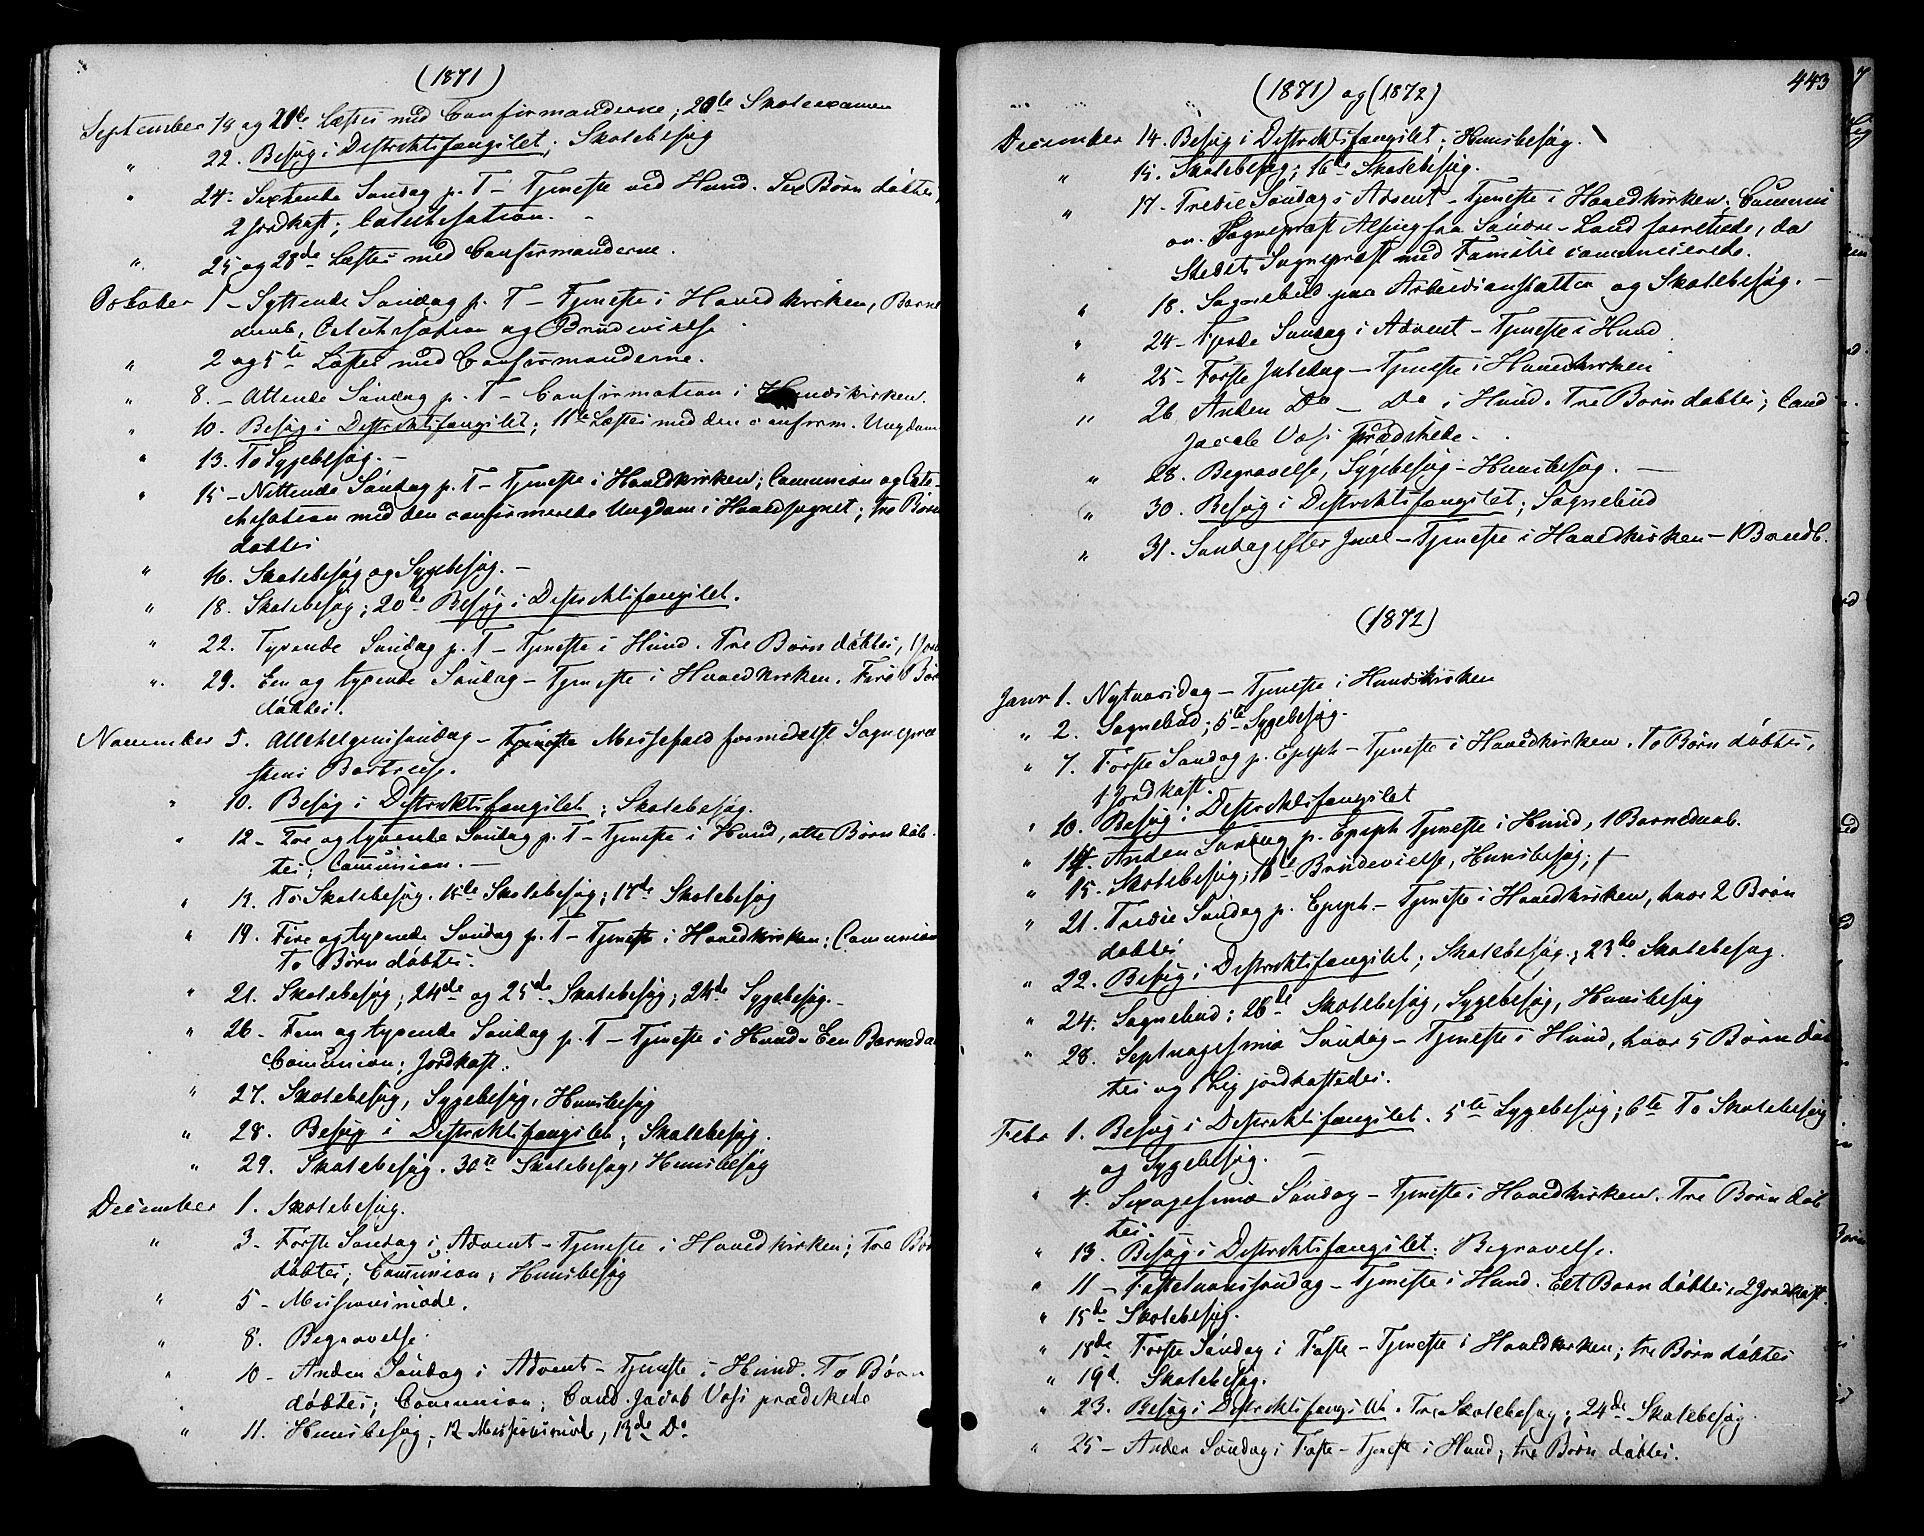 (1871)
September 19 og 21de Læstes med Confirmanderne; 20de Skoleexamen
" 22. Besøg i Distriktsfængslet; Skolebesøg
" 24. Sextende Søndag p. T – Tjeneste ved Hund. Sex Børn døbtes,
2 Jordkast; Catechisation. –
" 25 og 28de Læstes med Confirmanderne.
October 1 – Syttende Søndag p. T – Tjeneste i Hovedkirken, Barne
daab, Catechisation og Brudevielse.
" 2 og 5te Læstes med Confirmanderne.
" 8. – Attende Søndag p. T – Confirmation i Hundskirken.
" 10. Besøg i Distriktsfængslet; 11te Læstes med den confirm. Ungdom
" 13. To Sygebesøg. –
" 15 – Nittende Søndag p. T – Tjeneste i Hovedkirken; Communion og Cate-
chisation med den confirmerede Ungdom i Hovedsognet; tre Børn
døbtes
" 16. Skolebesøg og Sygebesøg. –
" 18. Skolebesøg; 20de Besøg i Distriktsfængslet.
" 22. Tyvende Søndag p. T – Tjeneste i Hund. Tre Børn døbtes, 1 Jord
" 29. Een og tyvende Søndag – Tjeneste i Hovedkirken. Fire Bør
døbtes.
November 5. Allehelgenssøndag – Tjeneste Messefald formedelst Sognepræ
stens Bortreise.
" 10. Besøg i Distriktsfængslet; Skolebesøg.
" 12 – Tre og tyvende Søndag p. T – Tjeneste i Hund, otte Børn døb-
tes; Communion. –
" 14. To Skolebesøg. 15de Skolebesøg; 17de Skolebesøg
" 19. Fire og tyvende Søndag p. T – Tjeneste i Hovedkirken; Communion
To Børn døbtes.
" 21. Skolebesøg; 24de og 25de Skolebesøg; 24de Sygebesøg. –
" 26 – Fem og tyvende Søndag p. T – Tjeneste i Hund. Een Barneda
Communion; Jordkast.
" 27. Skolebesøg, Sygebesøg, Huusbesøg
" 28. Besøg i Distriktsfængslet; Skolebesøg.
" 29. Skolebesøg. 30te Skolebesøg, Huusbesøg
December 1. Skolebesøg.
" 3 – Første Søndag i Advent – Tjeneste i Hovedkirken; Tre Bør
døbtes; Communion; Huusbesøg
" 5 – Missionsmøde.
" 8. Begravelse.
" 10 – Anden Søndag i Advent – Tjeneste i Hund. To Børn
døbtes; Communion; Cand. Jacob Vosi prædikede
" 11. Huusbesøg; 12 Missionsmøde, 13de Do
443
(1871) og (1872)
December 14. Besøg i Distriktsfængslet; Huusbesøg.
" 15. Skolebesøg; 16de Skolebesøg.
" 17 – Tredie Søndag i Advent – Tjeneste i Hovedkirken; Commni
on. Sognepræst Alsing fra Søndre-Land forrettede, da
Stedets Sognepræst med Familie communicerede.
" 18. Sognebud paa Arbeidsanstalten og Skolebesøg. –
" 24 – Fjerde Søndag i Advent – Tjeneste i Hund
" 25 – Første Juledag – Tjeneste i Hovedkirken
" 26 Anden Do – Do i Hund. Tre Børn døbtes; Cand
Jacob Vosi prædikede. –
" 28. Begravelse, Sygebesøg – Huusbesøg. –
" 30. Besøg i Distriktsfængslet; Sognebud
" 31. Søndag efter Juul – Tjeneste i Hovedkirken – 1 Barnedb.
(1872)
Janr 1. Nytaarsdag – Tjeneste i Hundskirken
" 2. Sognebud; 5te Sygebesøg.
" 7. Første Søndag p. Epiph – Tjeneste i Hovedkirken. To Børn døbtes,
1 Jordkast.
" 10. Besøg i Distriktsfængslet
" 14. Anden Søndag p. Epiph Tjeneste i Hund, 1 Barnedaab.
" 15. Skolebesøg; Brudevielse, Huusbesøg;
" 21. Tredie Søndag p. Epiph – Tjeneste i Hovedkirken, hvor 2 Børn
døbtes
" 22. Besøg i Distriktsfængslet; Skolebesøg; 23de Skolebesøg.
" 24. Sognebud; 26de Skolebesøg, Sygebesøg, Huusbesøg
" 28. Septuagesima Søndag – Tjeneste i Hund, hvor 5 Børn døb
tes og 1 Lig jordkastedes.
Febr 1. Besøg i Distriktsfængslet. 5te Sygebesøg; 6te To Skolebesøg
og Sygebesøg. –
" 4. Sexagesima Søndag – Tjeneste i Hovedkirken. Tre Børn døb
tes.
" 13. Besøg i Distriktsfængslet. Begravelse.
" 11 – Fastelavnssøndag – Tjeneste i Hund. Eet Barn døbtes, 2 Jordkast.
" 15de Skolebesøg.
" 18de Første Søndag i Faste – Tjeneste i Hovedkirken; tre Børn døbtes
" 19d. Skolebesøg.
" 23. Besøg i Distriktsfængslet. Tre Skolebesøg; 24de Skolebesøg.
" 25 – Anden Søndag i Faste – Tjeneste i Hund; tre Børn døbtes.